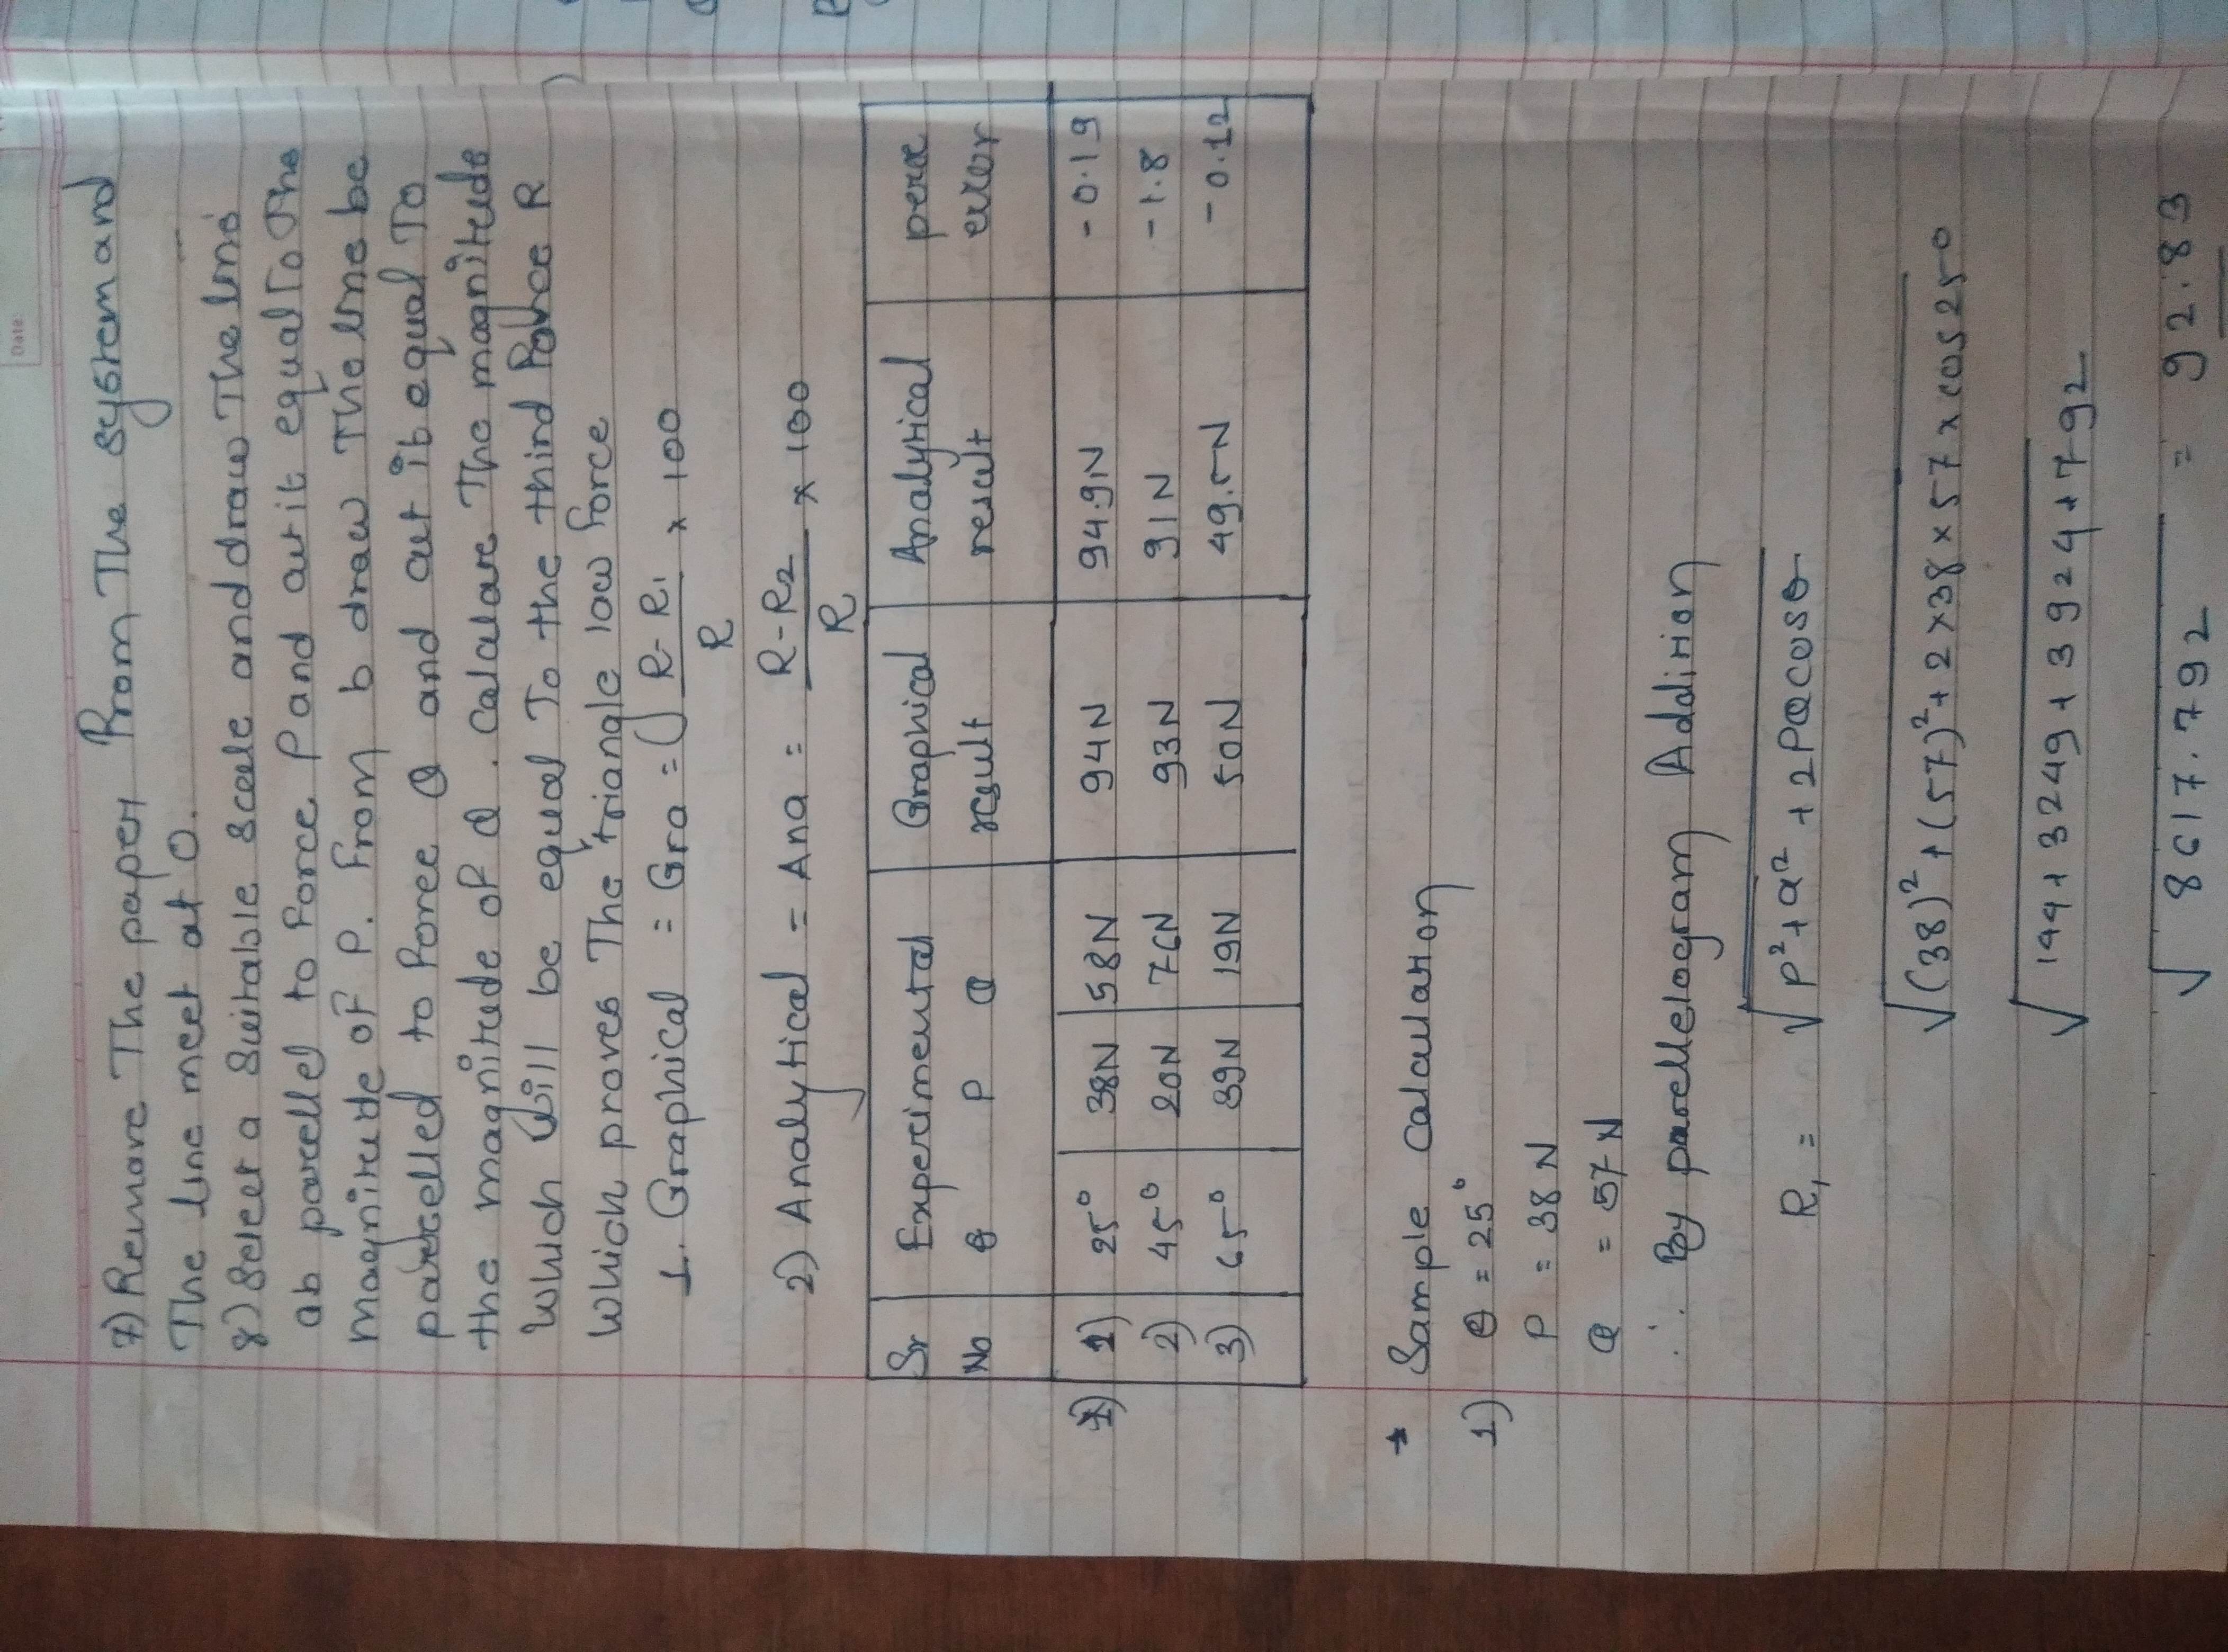 Date:
7) Remove The paper From The system and
The line meet at O.
8) Select a suitable scale and draw The line
ab parellel to force P and cut it equal To The
magnitude of P. From b draw The line be
parellelled to force Q and cut it equal To
the magnitude of Q. Calculate The magnitude
Which will be equal To the third Force R
Which proves The triangle law force
1. Graphical = Gra = ( R-R1 / R x 100
2) Analytical = Ana = R-R2 / R x 100
Sr No | Experimental θ P Q | Graphical result | Analytical result | perc error
1) 1) 25° 38N 58N 94N 94.9N -0.19
2) 45° 20N 76N 93N 91N -1.8
3) 65° 39N 19N 50N 49.5N -0.12
* Sample Calculation
1) θ = 25°
P = 38N
Q = 57N
∴ By parellelogram Addition
R1 = √P²+Q²+2PQcosθ
√(38)²+(57)²+2x38x57xcos25°
√144+3249+3924+792
√8617.792 = 92.83